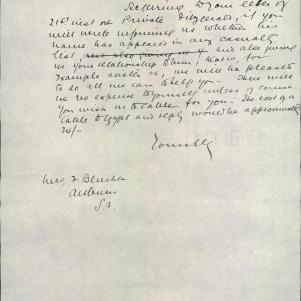 Referring to your letter of
21st inst re Private Fitzgerald, if you
will write informing us whether his
name has appeared in any casualty
list, and also giving
us your relationship to him, that is, for
example mother &c, we will be pleased
to do all we can to help you. There will
be no expense to yourself unless of course
you wish us to cable for you. The cost of a
cable to Egypt and reply would be approximately
24/-
Yours tly
Mrs. F Blucher
Auburn
S.A.